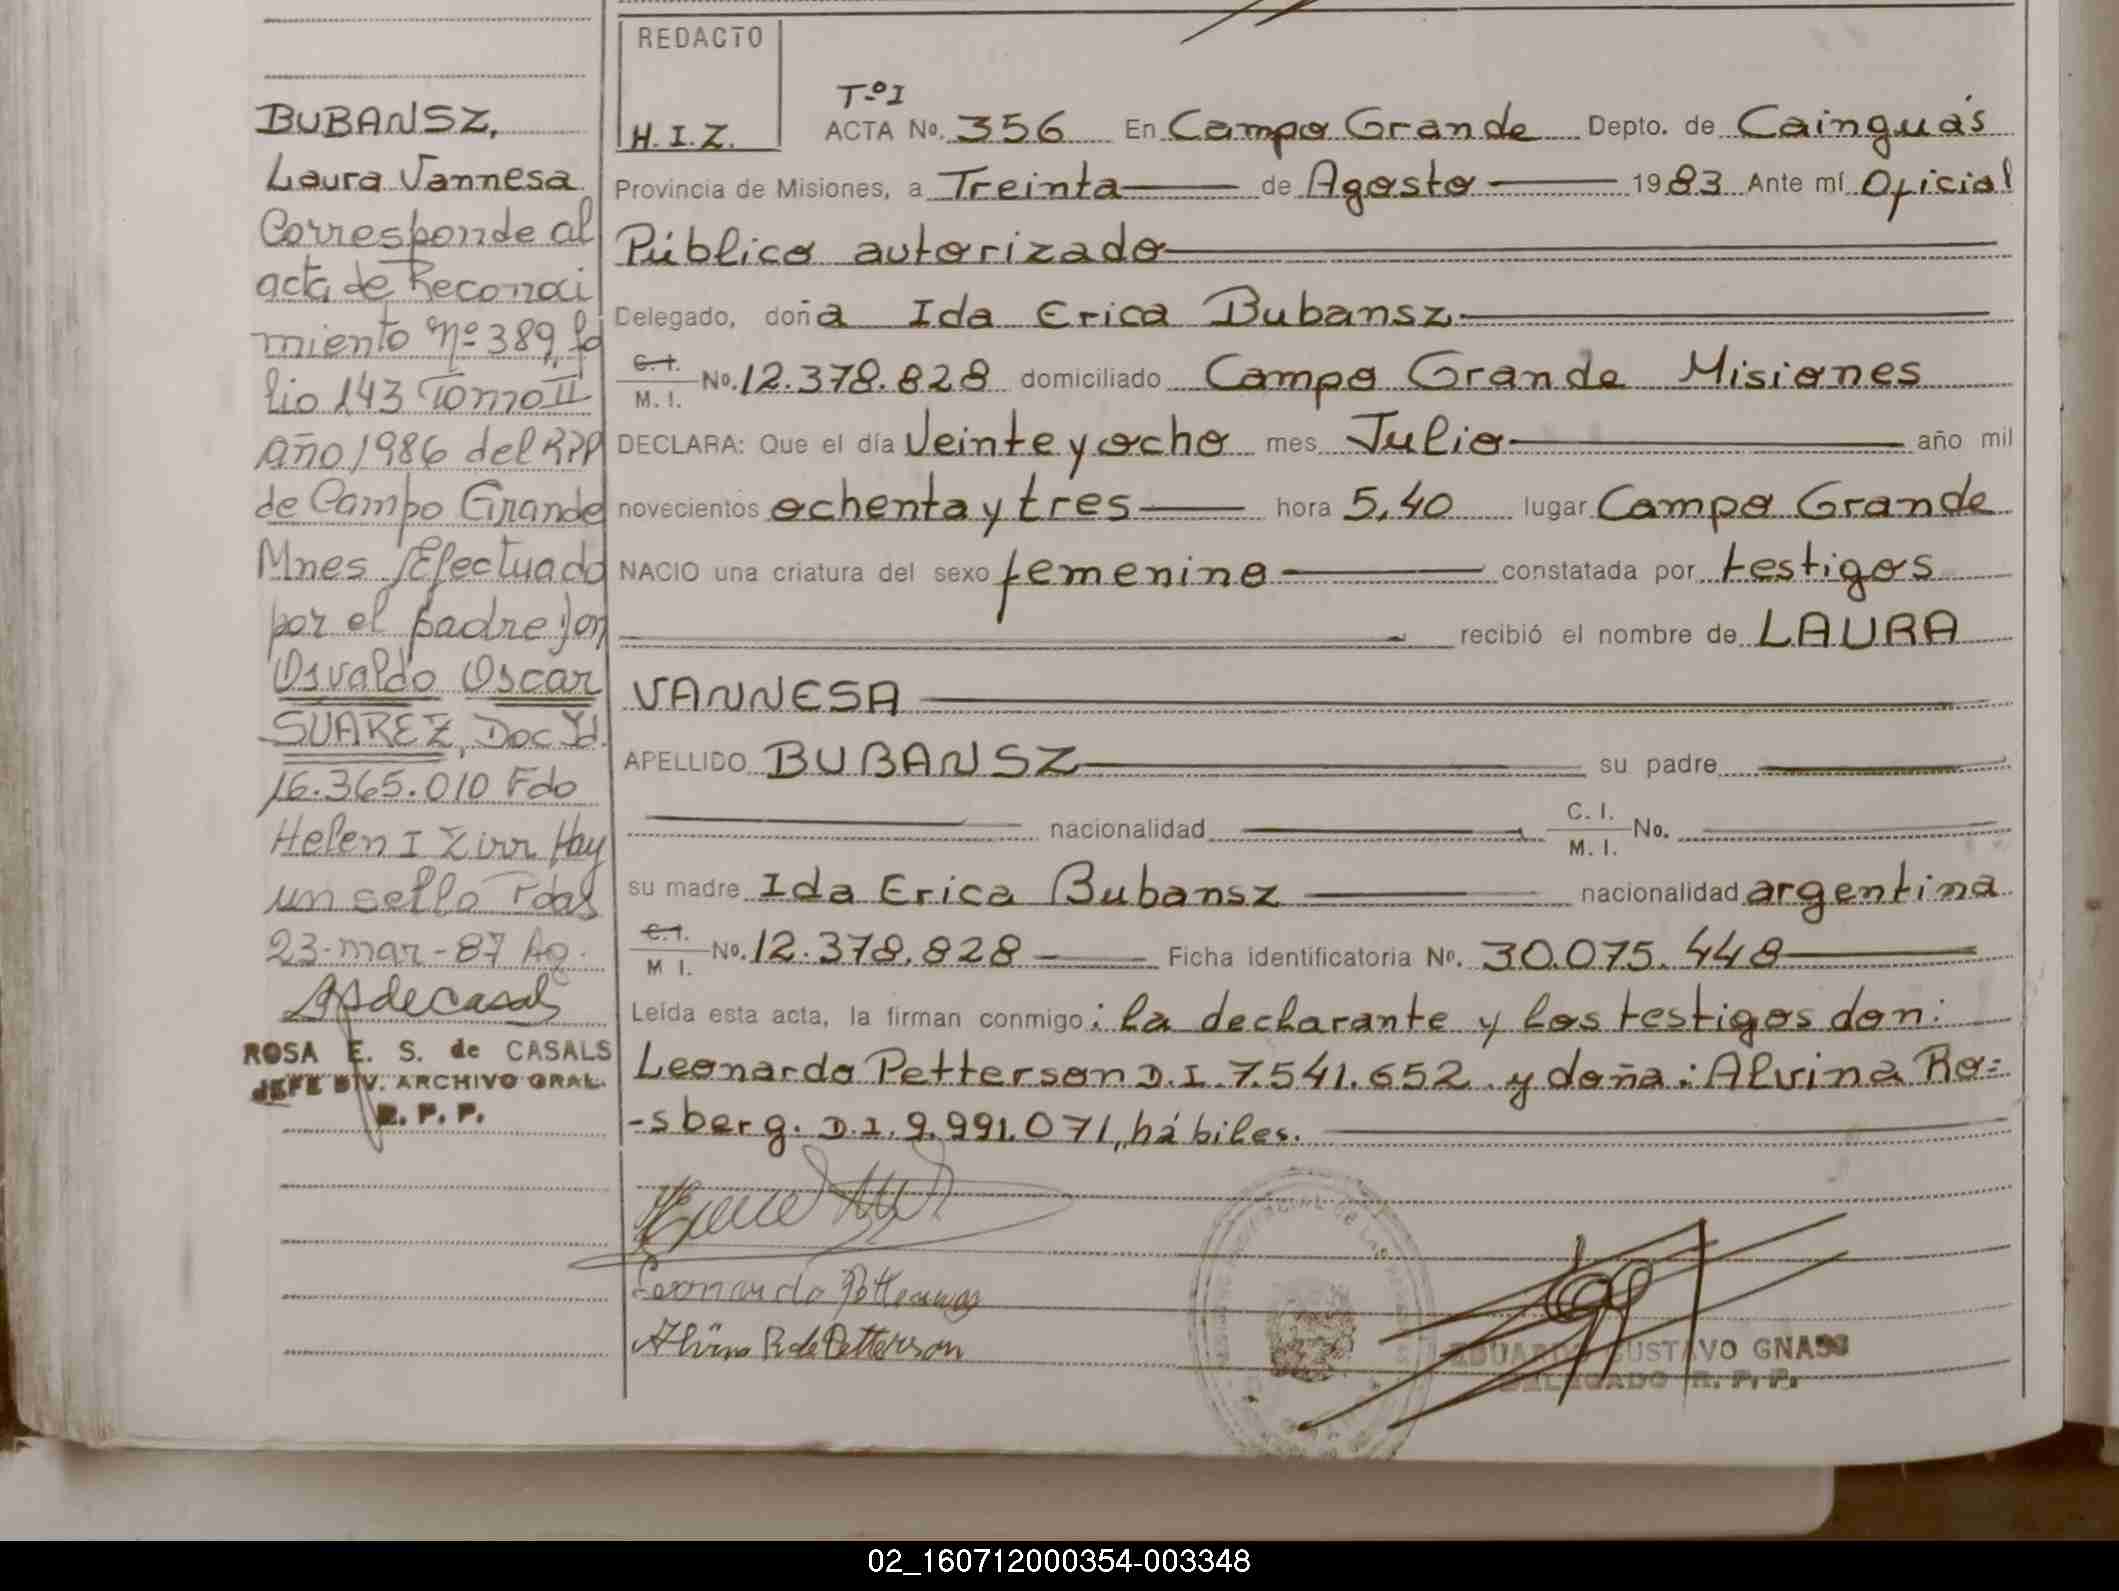 BUBANSZ,
Laura Vannesa
Corresponde al
acta de Reconoci
miento Nº 389, fo
lio 143 Tomo II
año 1986 del RPP
de Campo Grande
Mnes Efectuado
por el padre Don
Osvaldo Oscar
SUAREZ, Doc Id.
16.365.010 Fdo
Helen I Zirr Hay
un sello Pdas
23-mar-87 Ag.
ROSA E. S. de CASALS
JEFE DIV. ARCHIVO GRAL.
R. P. P.
REDACTO
H.I.Z.
Tº I
ACTA No. 356 En Campo Grande Depto. de Cainguás
Provincia de Misiones, a Treinta de Agosto 1983 Ante mí Oficial
Público autorizado
Delegado, doña Ida Erica Bubansz
C.I.
M. I. No. 12.378.828 domiciliado Campo Grande Misiones
DECLARA: Que el día Veinte y ocho mes Julio año mil
novecientos ochenta y tres hora 5,40 lugar Campo Grande
NACIO una criatura del sexo femenino constatada por testigos
recibió el nombre de LAURA
VANNESA
APELLIDO BUBANSZ su padre
nacionalidad C. I.
M. I. No.
su madre Ida Erica Bubansz nacionalidad argentina
C.I.
M I. No. 12.378.828 Ficha identificatoria No. 30.075.448
Leída esta acta, la firman conmigo: la declarante y los testigos don:
Leonardo Petterson D.I. 7.541.652 y doña: Alvina Ro=
-sberg. D.I. 9.991.071, hábiles.
Alvina R de Petterson
EDUARDO GUSTAVO GNASS
DELEGADO R. P. P.
02_160712000354-003348